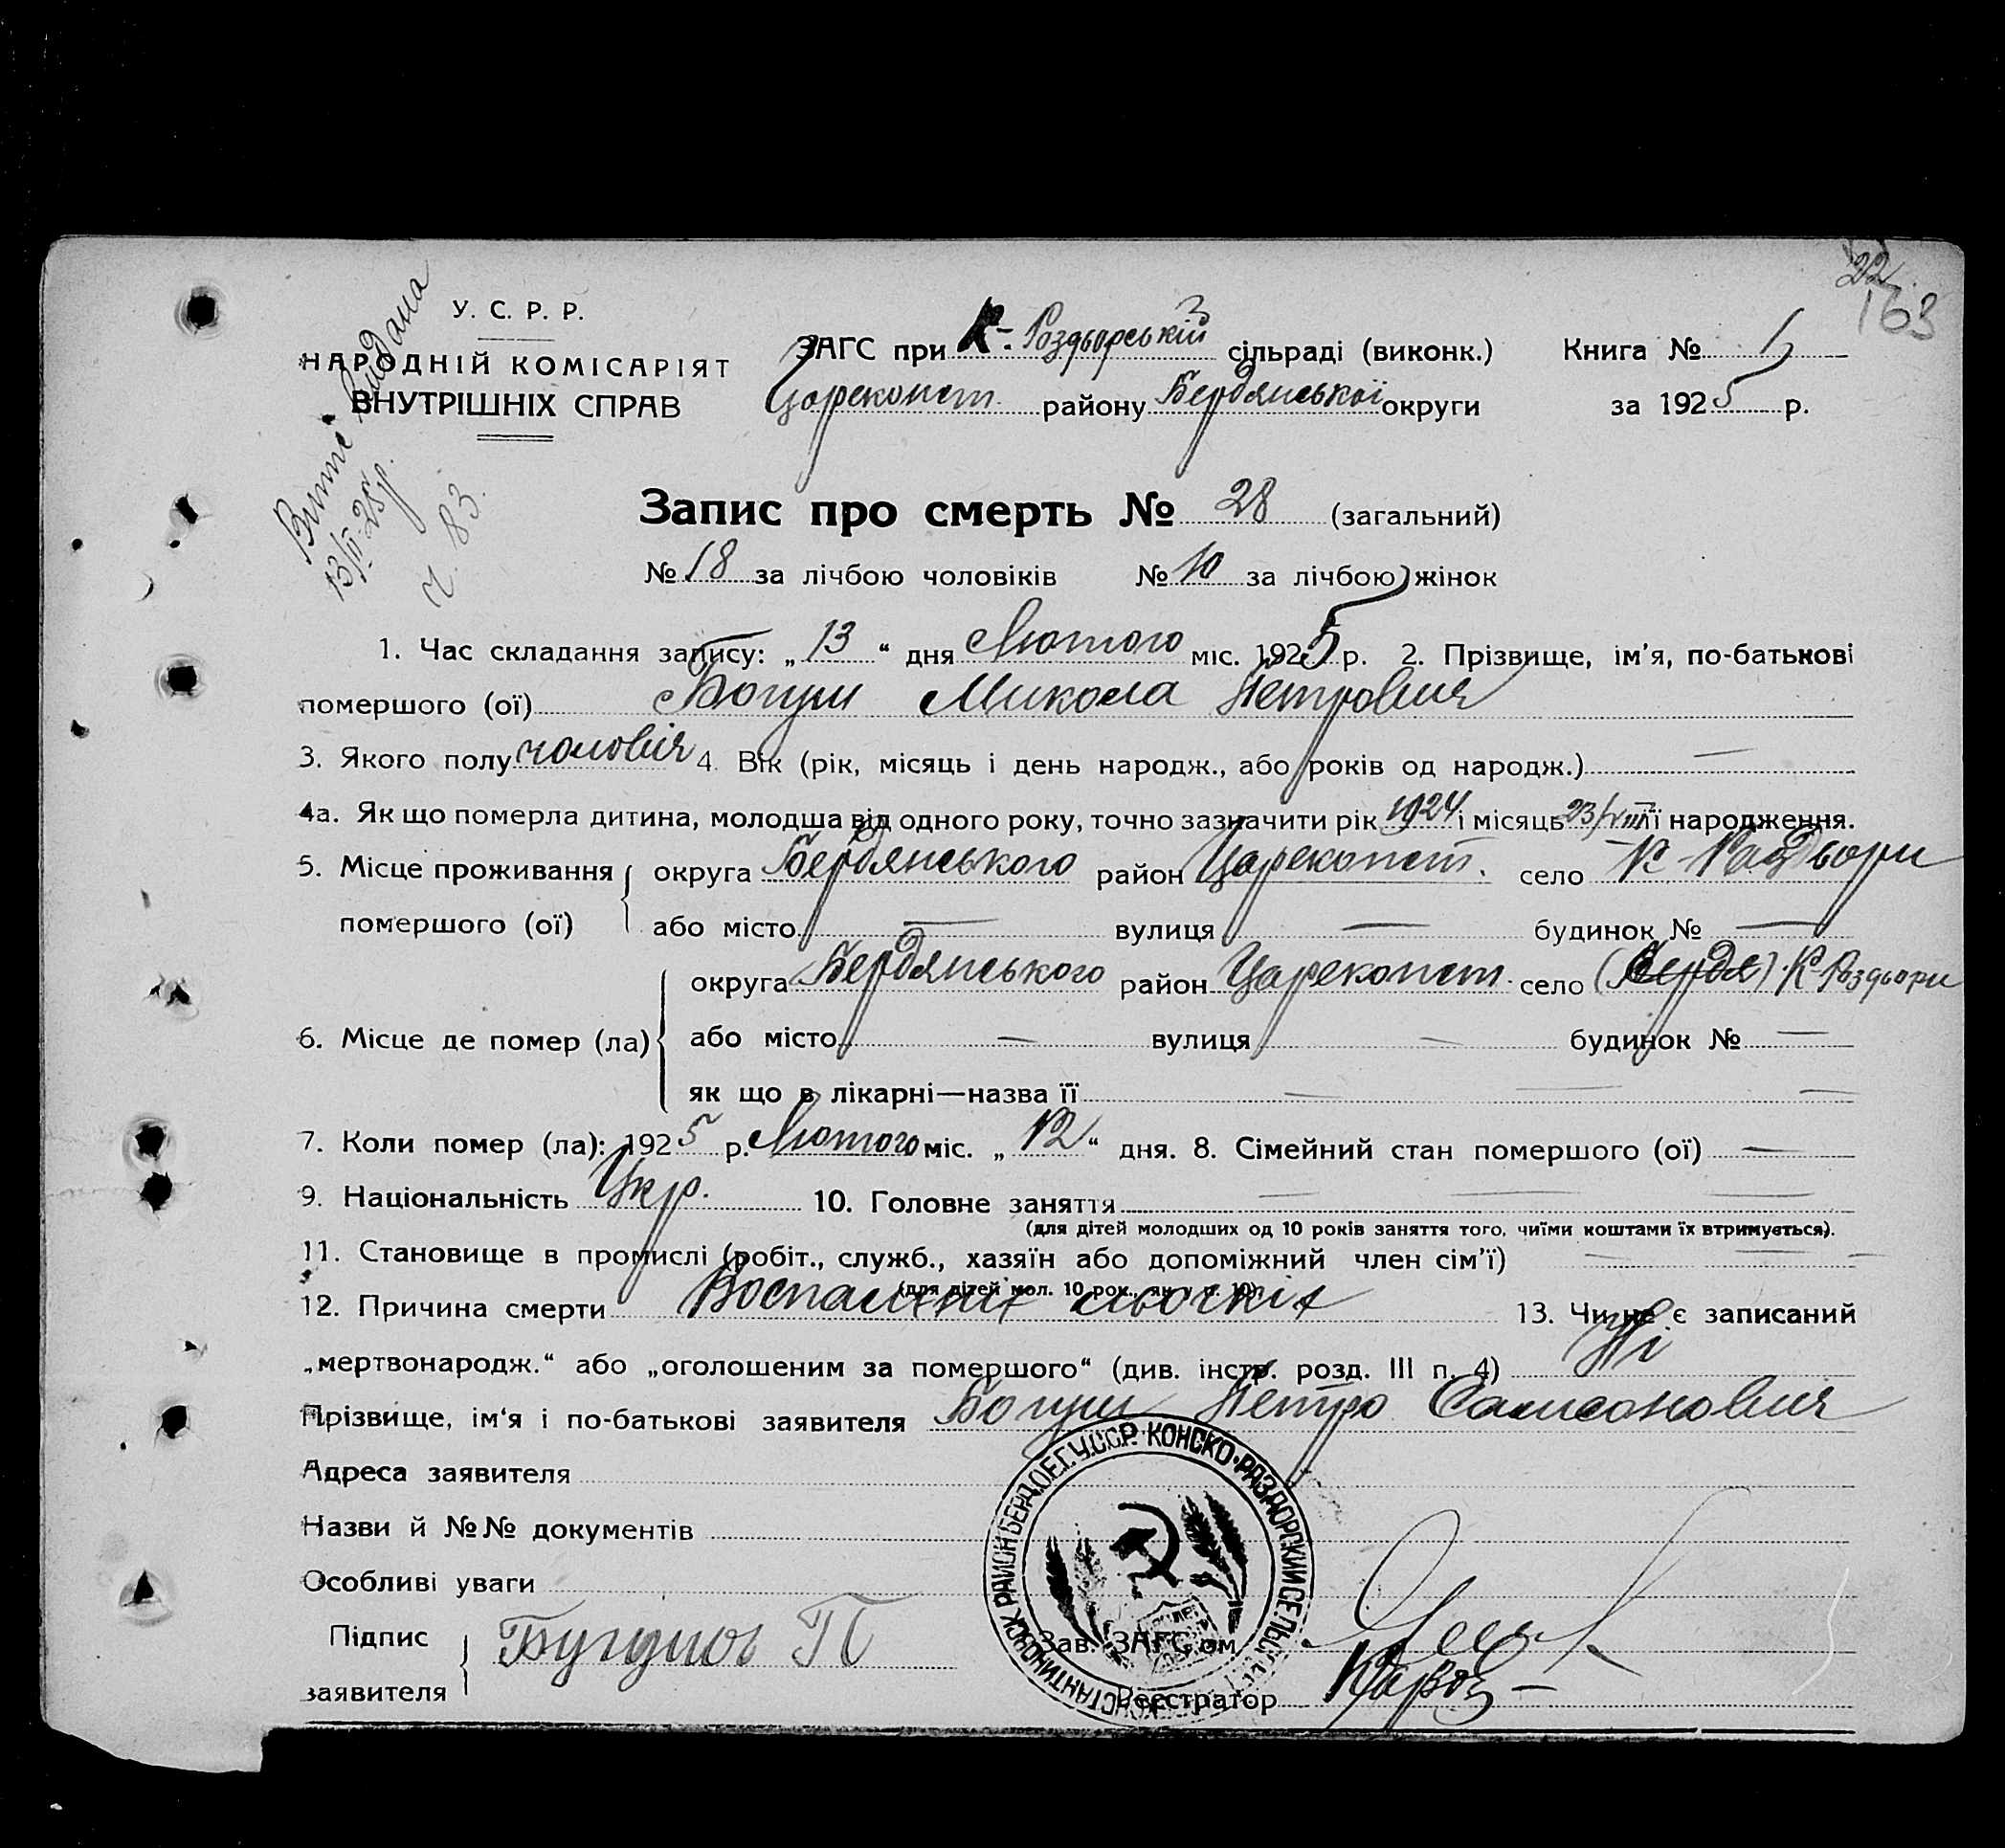 22
163
У. С. Р. Р.
НАРОДНІЙ КОМІСАРІЯТ
ВНУТРІШНІХ СПРАВ
Витяг видана
13/II-25р.
ч. 83.
ЗАГС при К-Роздьорській сільраді (виконк.) Книга № 1
Цареконст. району Бердянської округи за 1925 р.
Запис про смерть № 28 (загальний)
№ 18 за лічбою чоловіків № 10 за лічбою жінок
1. Час складання запису: „13“ дня Лютого міс. 1925 р. 2. Прізвище, ім’я, по-батькові
помершого (ої) Богуш Микола Петрович
3. Якого полу чоловіч 4. Вік (рік, місяць і день народж., або років од народж.) —
4а. Як що померла дитина, молодша від одного року, точно зазначити рік 1924 і місяць 23/VIII її народження.
5. Місце проживання округа Бердянського район Цареконст. село К-Раздьори
помершого (ої) або місто — вулиця — будинок № —
округа Бердянського район Цареконст. село (Бердя) К-Роздьори
6. Місце де помер (ла) або місто — вулиця — будинок № —
як що в лікарні—назва її — — —
7. Коли помер (ла): 1925 р. Лютого міс. „12“ дня. 8. Сімейний стан помершого (ої) —
9. Національність Укр. 10. Головне заняття — — —
(для дітей молодших од 10 років заняття того, чиїми коштами їх втримується).
11. Становище в промислі (робіт., служб., хазяїн або допоміжний член сім’ї) — — —
(для дітей мол. 10 рок., як п. 10)
12. Причина смерти Воспаління льочкіх 13. Чи не є записаний
„мертвонародж.“ або „оголошеним за помершого“ (див. інстр. розд. III п. 4) Ні
Прізвище, ім‘я і по-батькові заявителя Богуш Петро Самсонович
Адреса заявителя
Назви й №№ документів
Особливі уваги
Підпис
заявителя
Зав. ЗАГС‚ом
Реєстратор
У.С.С.Р. КОНСКО-РАЗДОРСКИЙ СЕЛЬС
КОНСТАНТИНОВСК РАЙОН БЕРД.ОЕ.Г.